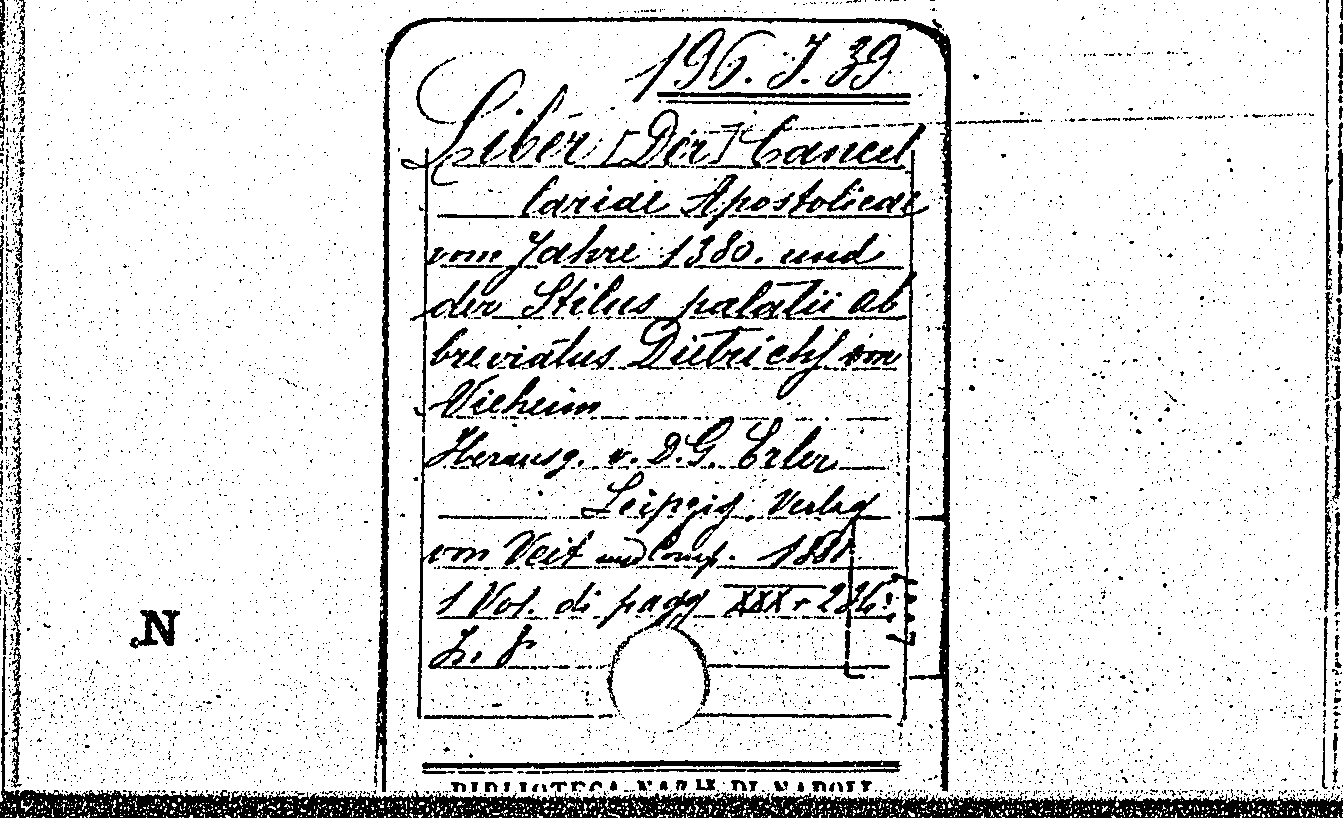 196. J. 39
Liber [Der] Cancel
lariae Apostolicae
vom Jahre 1380. und
der Stilus palatii ab
breviatus Dietrichs von
Nieheim
Herausg. v. D.G. Erler
Leipzig, Verlag
von Veit und Comp. 1881.
1 Vol. di pagg XXX + 236.
N
BIBLIOTECA NAZ.LE DI NAPOLI